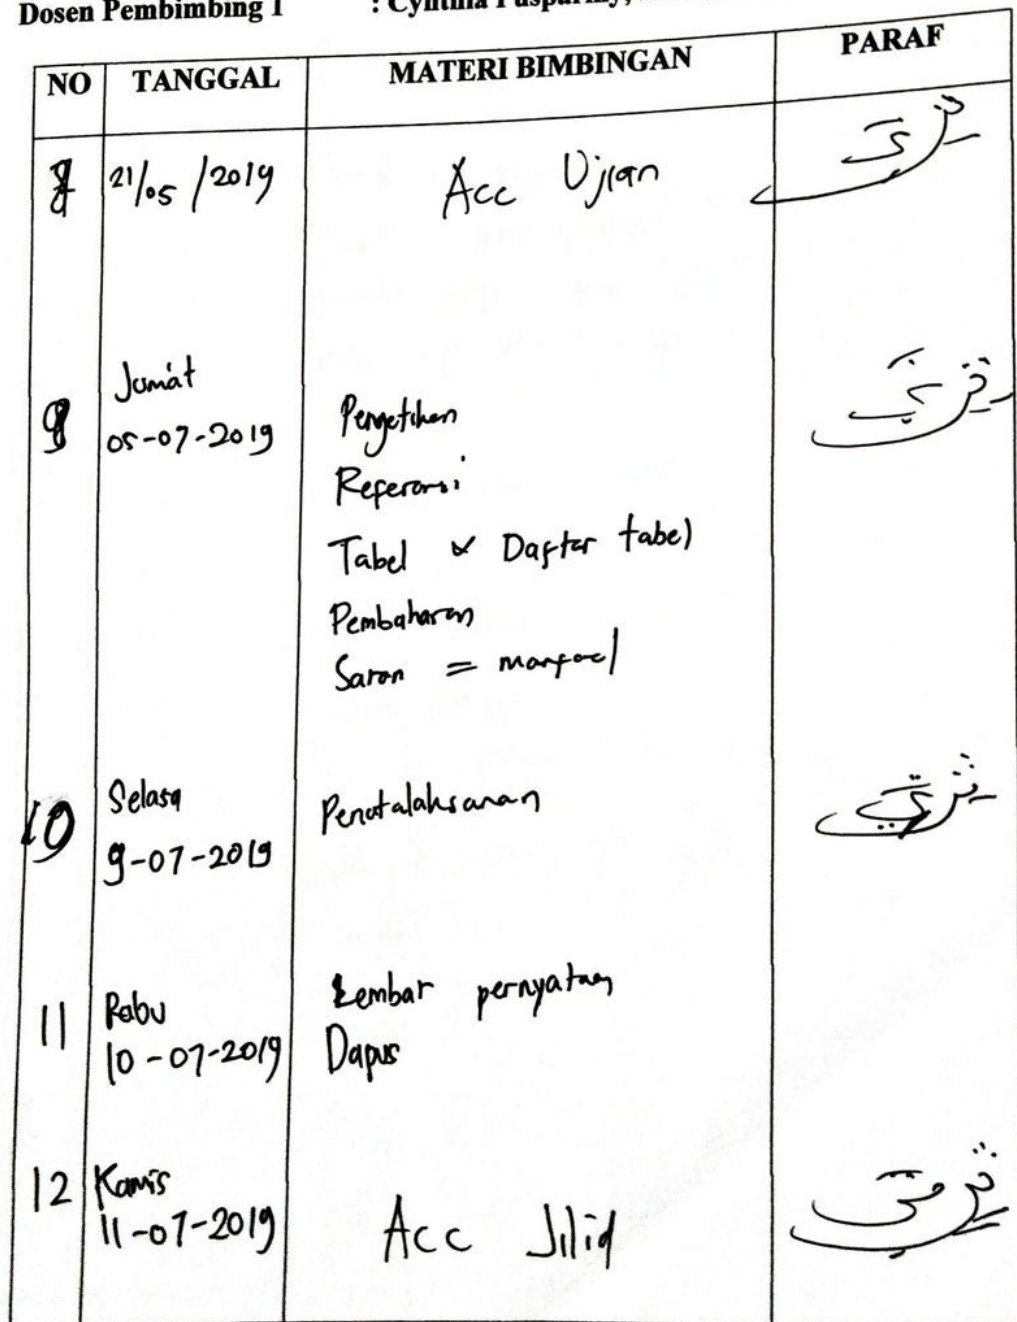 Dosen Pembimbing 1 : Cynthia
NO TANGGAL MATERI BIMBINGAN PARAF
8 21/05/2019 Acc Ujian
Jumat
9 05-07-2019 Pengetikan
Referensi
Tabel & Daftar tabel
Pembahasan
Saran = manfaat
10 Selasa Penatalaksanaan
9-07-2019
11 Rabu Lembar pernyataan
10-07-2019 Dapus
12 Kamis
11-07-2019 Acc Jilid